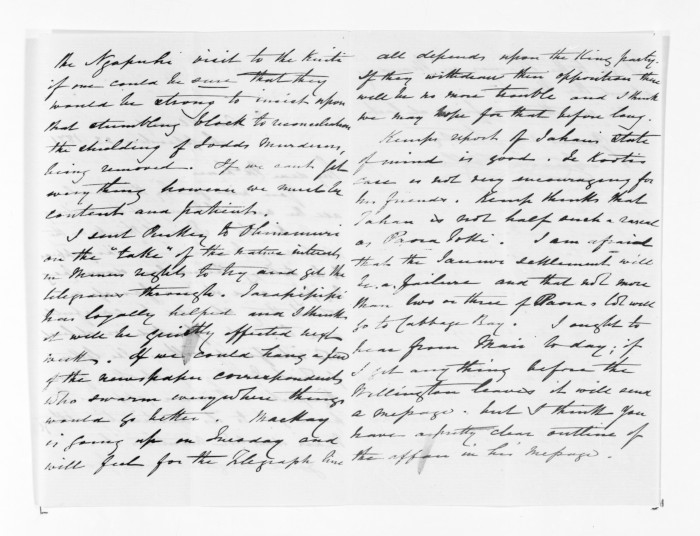 The Ngapuhi visit to the Kuiti
if one could be sure that they
would be strong to insist upon
that stumbling block to reconciliation
the shielding of Todds Murderers,
being removed. If we can't get
everything however we must be
content and patient.
I sent Puckey to Ohinamuri
on the "take" of the native interests
in Miners rights to try and get the
telegraph through. Tarapipipi
has loyally helped and I think
it will be quietly effected next
week. If we could hang a few
of the newspaper correspondents
who swarm everywhere things
would go better. Mackay
is going up on Tuesday and
will feel for the Telegraph line
all depends upon the King party.
If they withdraw their opposition there
will be no more trouble and I think
we may hope for that before long.
Kemps report of Tahau's state
of mind is good. Te Kootis
case is not very encouraging for
his friends. Kemp thinks that
Tahau is not half such a rascal
as Paora Toki. I am afraid
that the settlement will
be a failure and that not more
than two or three of Paora's lot will
go to Cabbage Bay. I ought to
hear from Mair to day; if
I get anything before the
Wellington leaves it will send
a message. but I think you
have a pretty clear outline of
the affair in his message.